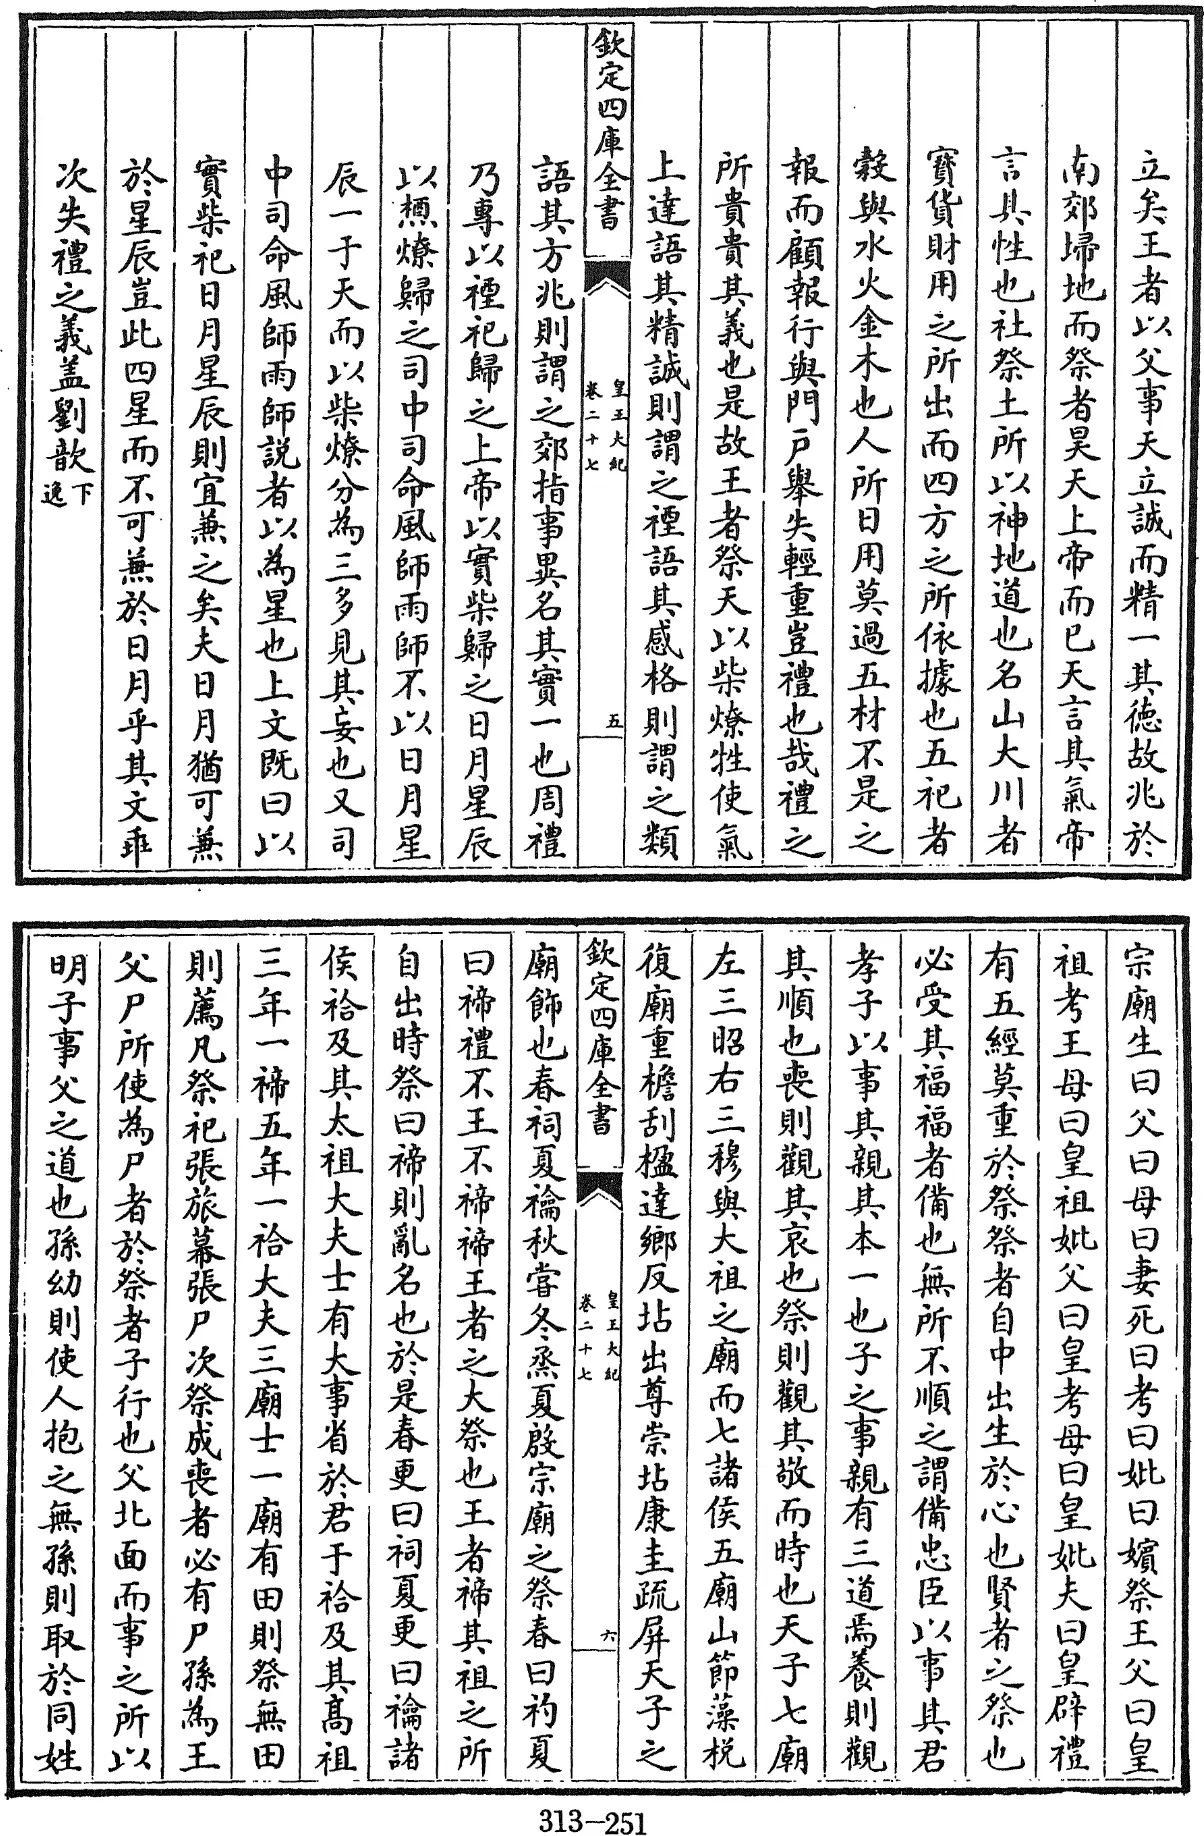 立矣王者以父事天立誠而精一其徳故兆於
南郊埽地而祭者昊天上帝而已天言其氣帝
言其性也社祭土所以神地道也名山大川者
寳貨財用之所出而四方之所依據也五祀者
穀與水火金木也人所日用莫過五材不是之
報而顧報行與門戸舉失輕重豈禮也哉禮之
所貴貴其義也是故王者祭天以柴燎牲使氣
上達語其精誠則謂之禋語其感格則謂之類
欽定四庫全書
皇王大紀
卷二十七
五
語其方兆則謂之郊指事異名其實一也周禮
乃專以禋祀歸之上帝以實柴歸之日月星辰
以槱燎歸之司中司命風師雨師不以日月星
辰一于天而以柴燎分為三多見其妄也又司
中司命風師雨師説者以為星也上文既曰以
實柴祀日月星辰則宜兼之矣夫日月猶可兼
於星辰豈此四星而不可兼於日月乎其文乖
次失禮之義盖劉歆下
逸
宗廟生曰父曰母曰妻死曰考曰妣曰嬪祭王父曰皇
祖考王母曰皇祖妣父曰皇考母曰皇妣夫曰皇辟禮
有五經莫重於祭祭者自中出生於心也賢者之祭也
必受其福福者備也無所不順之謂備忠臣以事其君
孝子以事其親其本一也子之事親有三道焉養則觀
其順也喪則觀其哀也祭則觀其敬而時也天子七廟
左三昭右三穆與大祖之廟而七諸侯五廟山節藻梲
復廟重檐刮楹達鄉反坫出尊崇坫康圭疏屏天子之
欽定四庫全書
皇王大紀
卷二十七
六
廟飾也春祠夏禴秋嘗冬烝夏殷宗廟之祭春曰礿夏
曰禘禮不王不禘禘王者之大祭也王者禘其祖之所
自出時祭曰禘則亂名也於是春更曰祠夏更曰禴諸
侯祫及其太祖大夫士有大事省於君于祫及其髙祖
三年一禘五年一祫大夫三廟士一廟有田則祭無田
則薦凡祭祀張旅幕張尸次祭成喪者必有尸孫為王
父尸所使為尸者於祭者子行也父北面而事之所以
明子事父之道也孫幼則使人抱之無孫則取於同姓
313-251